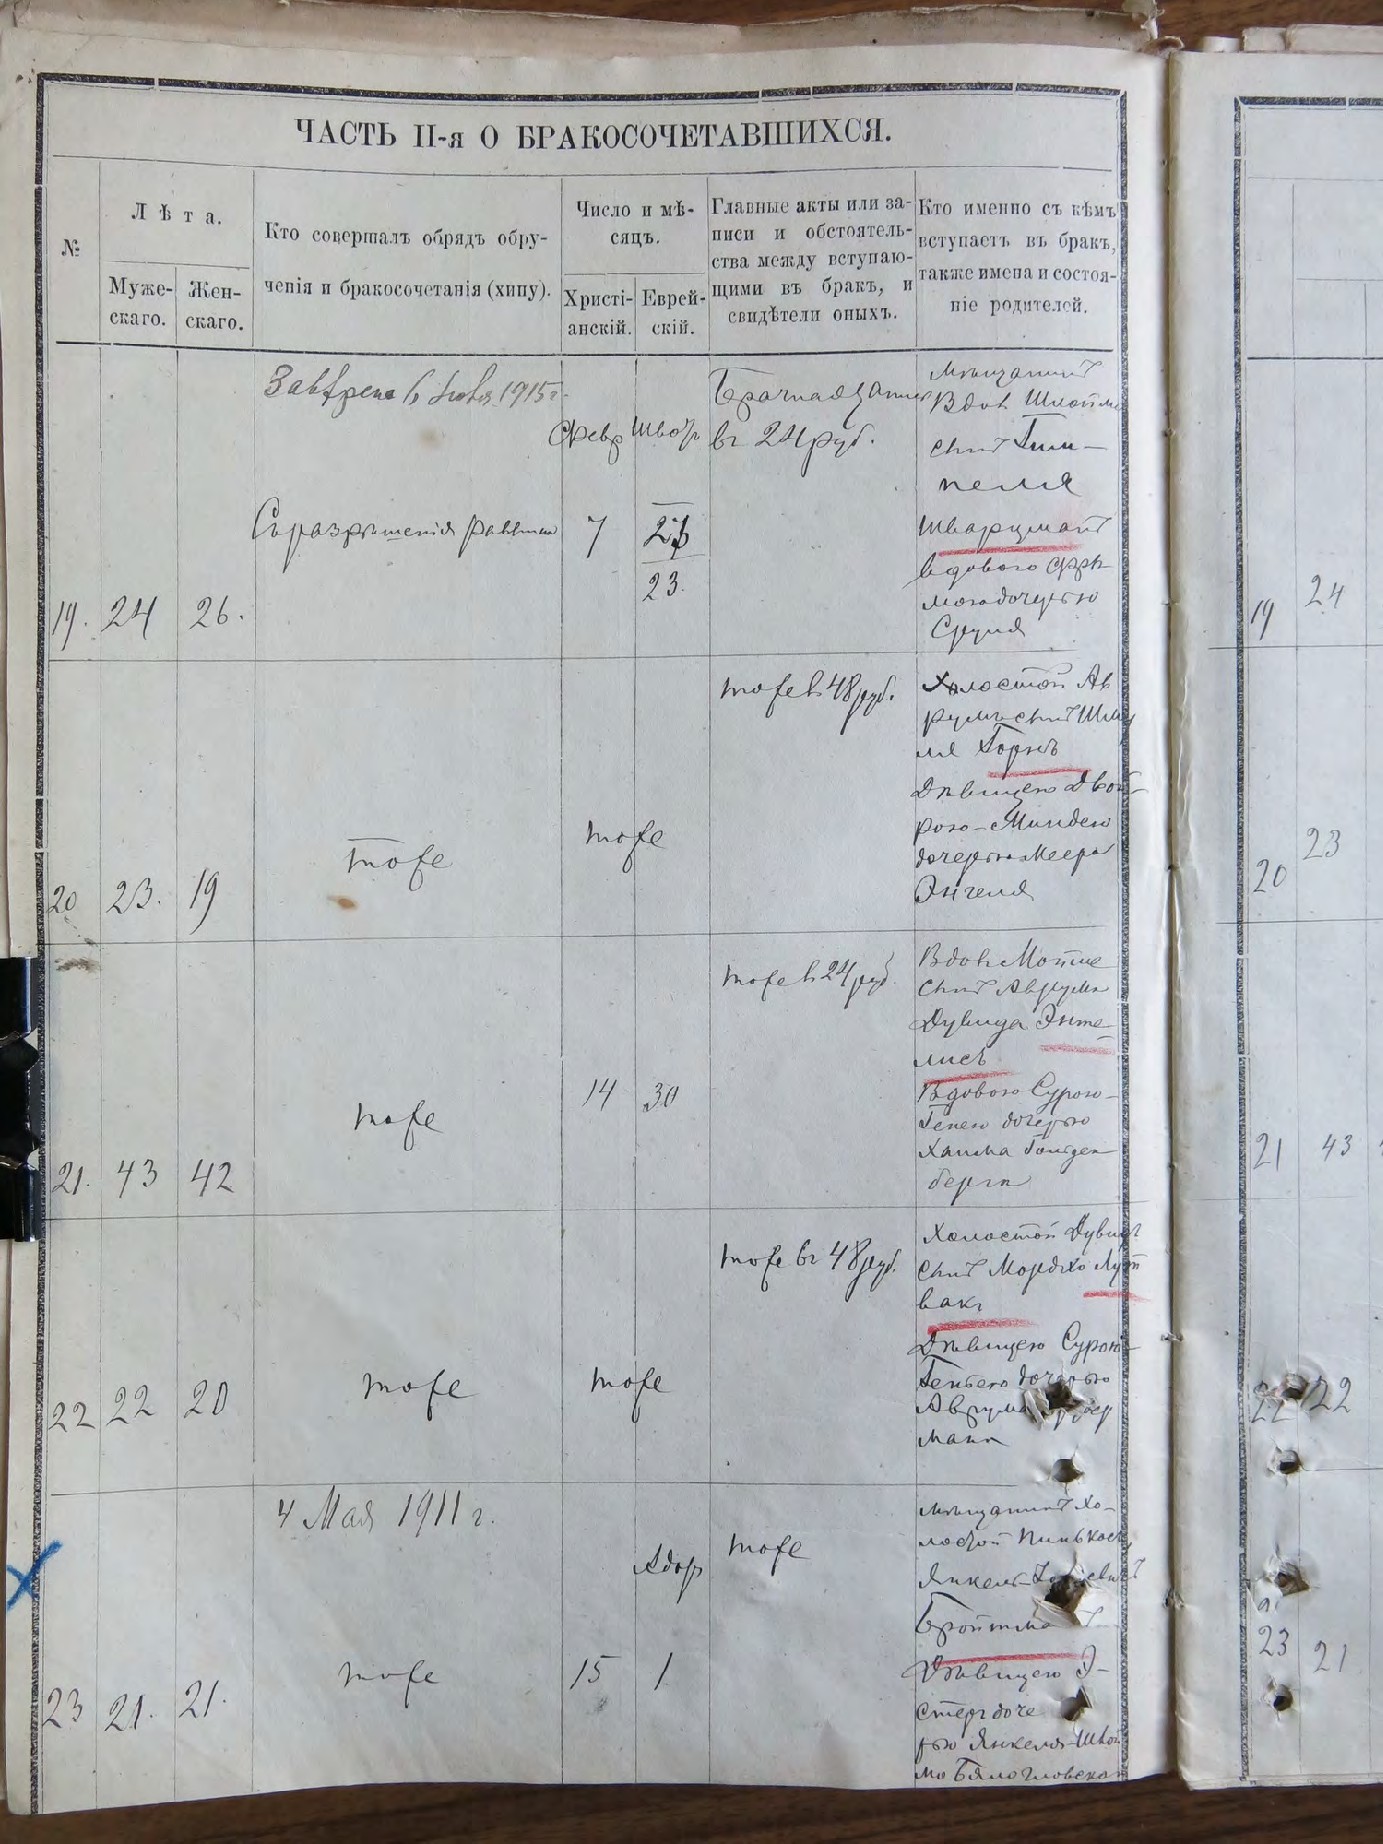 ЧАСТЬ II-я О БРАКОСОЧЕТАВШИХСЯ.
№
Лѣта.
Муже-
скаго.
Жен-
скаго.
Кто совершалъ обрядъ обру-
ченія и бракосочетанія (хипу).
Число и мѣ-
сяцъ.
Христі-
анскій.
Еврей-
скій.
Главные акты или за-
писи и обстоятель-
ства между вступаю-
щими въ бракъ, и
свидѣтели оныхъ.
Кто именно съ кѣмъ
вступаетъ въ бракъ,
также имена и состоя-
ніе родителей.
19. 24 26.
1915 г.
Съ разрѣшенія
Февр Швот
7
23
Брачная запись
въ 24 руб.
Мѣщанинъ
Вдов Шлойме
сынъ Гим-
пеля
Шварцманъ
вдовою
дочерью
Сруля
20 23. 19
тоже
тоже
тоже въ 48 руб.
Холостой Ав
румъ сынъ Шму
ля Горнъ
Дѣвицею Двой-
рою-Миндею
дочерью Меера
Энгеля
21. 43 42
тоже
14 30
тоже въ 24 руб
Вдов Мотше
сынъ Аврума
Дувида Энте-
лисъ
Вдовою Сурою-
Генею дочерью
Хаима Гольден
берга
22 22 20
тоже
тоже
тоже въ 48 руб.
Холостой Дувидъ
сынъ Мордко Лут
вакъ
Дѣвицею Сурою-
Генею дочерью
Аврума
мана
4 Мая 1911 г.
23 21. 21.
тоже
Адар
15 1
тоже
Мѣщанинъ Хо-
лостой Пинькас
Янкель
Дѣвицею Э-
стеръ доче
рью Янкеля-Шлой
мо
19 24
20 23
21 43
22 22
23 21